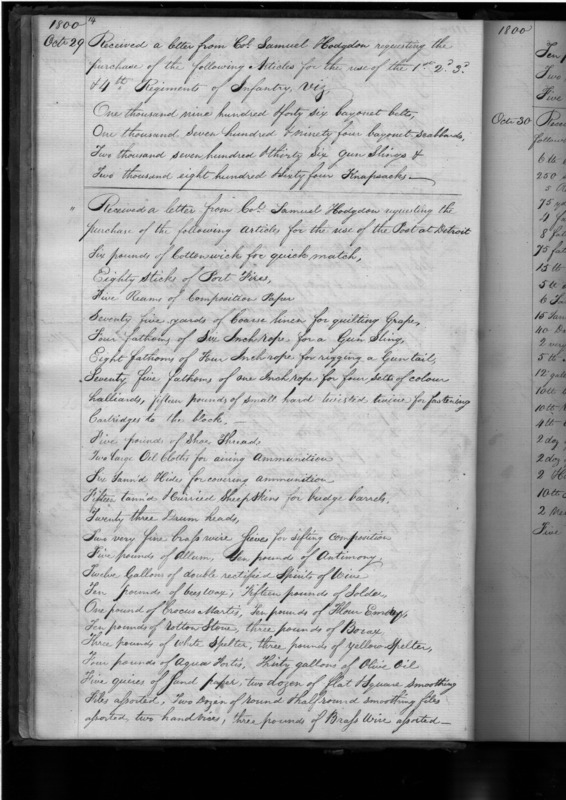 1800
Octr 29 Received a letter from Col. Samuel Hodgdon requesting the
purchase of the following Articles for the use of the 1st 2d 3d
& 4th Regiments of Infantry, viz
One thousand nine hundred & forty six bayonet belts,
One thousand seven hundred & ninety four bayonet scabbards,
Two thousand seven hundred & thirty six Gun Slings &
Two thousand eight hundred & sixty four Knapsacks —
" Received a letter from Col. Samuel Hodgdon requesting the
purchase of the following Articles for the use of the Post at Detroit
Six pounds of Cotton wick for quick match,
Eighty Sticks of Port Fires,
Five Reams of Composition Paper
Seventy five yards of Coarse linen for quilting Grape,
Four fathoms of Six Inch rope for a Gun Sling,
Eight fathoms of Four Inch rope for rigging a Gun tail,
Seventy five fathoms of one Inch rope for four setts of colour
halliards, fifteen pounds of small hard twisted twine for fastening
Cartridges to the block,
Five pound of Shoe Thread
Two large Oil Cloths for airing Ammunition
Six Tann'd Hides for covering ammunition
Fifteen tann'd & curried Sheep Skins for budge barrels,
Twenty three Drum heads,
Two very fine brass wire sieves for sifting Composition
Five pounds of Allum, Ten pounds of Antimony
Twelve Gallons of double rectified Spirits of Wine
Ten pounds of beeswax, Fifteen pounds of Solder,
One pound of Crocus Martis, Ten pounds of Flour Emery,
Ten pounds of rotton Stone, three pounds of Borax
Three pounds of White Spelter, three pounds of yellow Spelter,
Four pounds of Aqua Fortis, Thirty gallons of Olive Oil
Five quires of Sand paper, two dozen of flat Square smoothing
files assorted, Two dozen of round & half round smoothing files
assorted, two hand vices, three pounds of Brass Wire assorted —
1800
Ten
Two
Five
Octr 30 Recei
follow
6 lb
250
75
4
8
75
15 lb
5 lb
6
15
40
2
5 lb
12
10 lb
10 lb
4 lb
2 doz
2 doz
2
10
2
Five